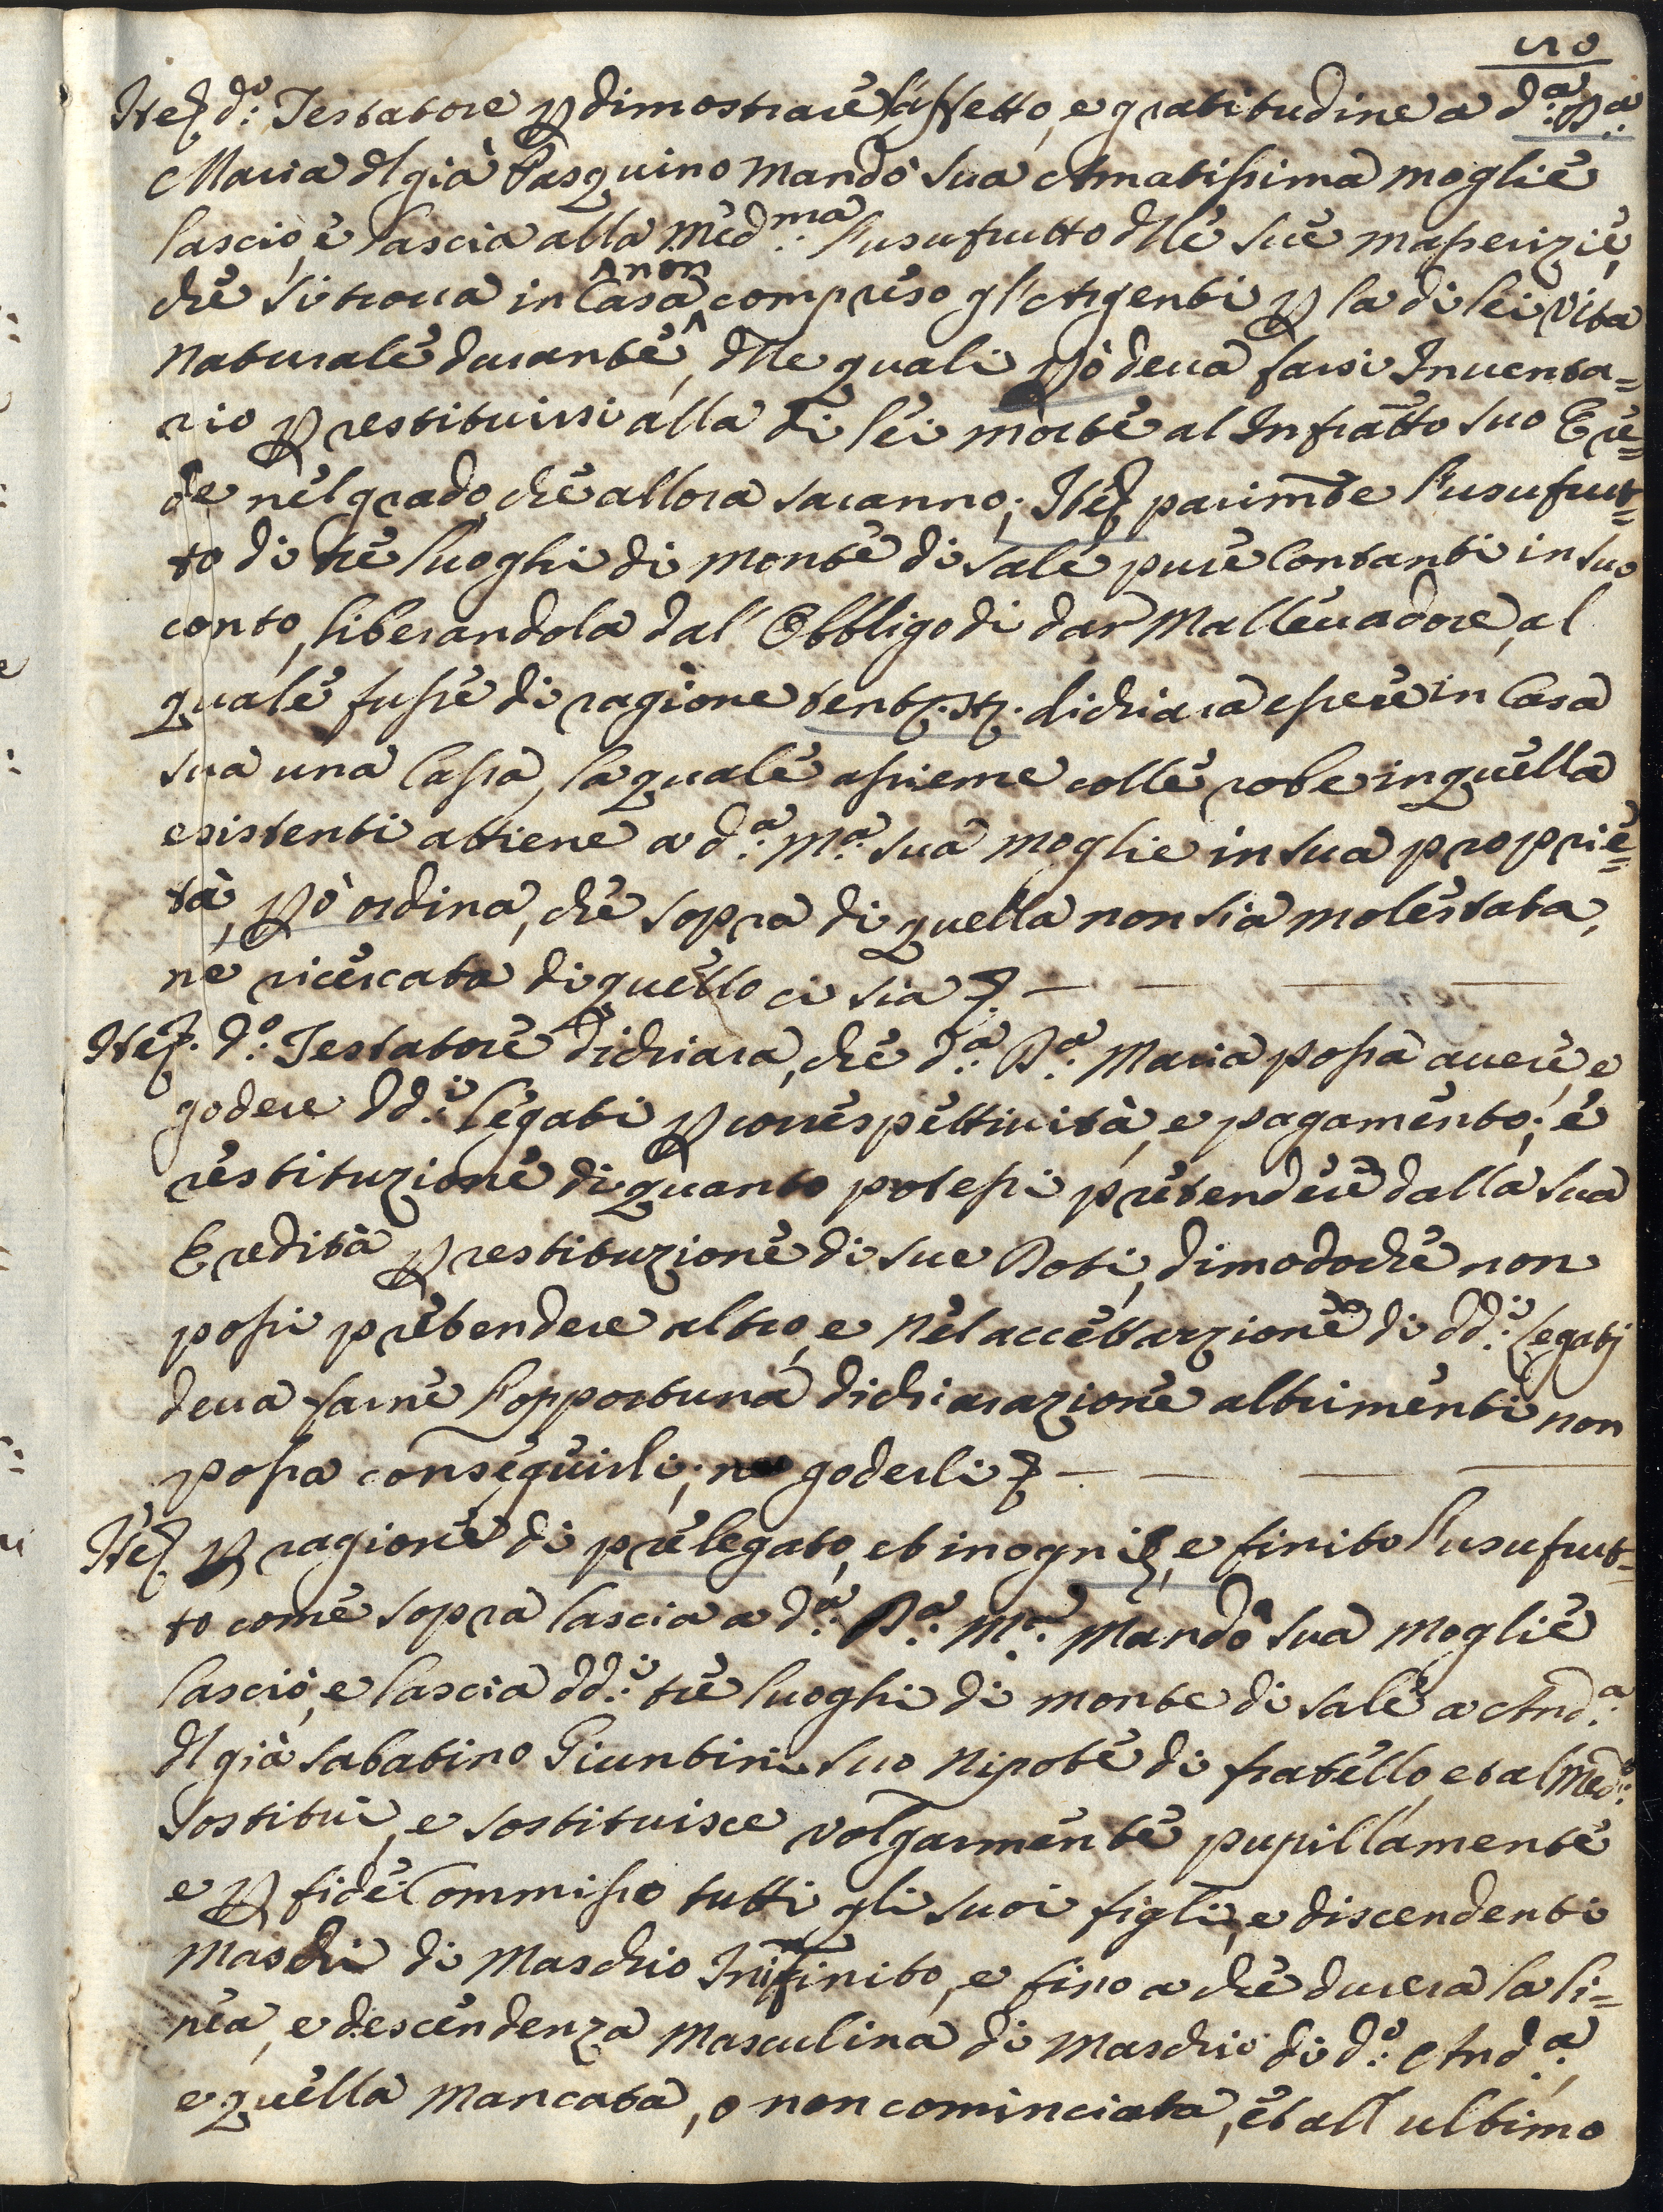 Itel d.º Testatore p dimostrare l'affetto, e gratitudine a d.ª D.ª
Maria dl già Pasquino Mandò sua Amatissima moglie
lasciò, e lascia alla Med.ma l'usufrutto dlle sue masserizie,
che si trova in Casa non compreso gl'Argenti p la di lei vita
naturale durante, dlle quali però deva farsi Inventa=
rio p restituirsi alla di lei morte al Infratto suo Ere=
de nel grado che allora saranno; Itel parimte l'usufrut=
to di tre luoghi di monte di sale pure Contanti in suo
conto, liberandola dal' Obbligo di dar Mallevadore, al
quale fusse di ragione dichiara essere in Casa
sua una Cassa, la quale assieme colle robe in quella
esistenti attiene a d.ª M.ª sua moglie in sua proprie=
tà, pò ordina, che sopra di quella non sia molestata,
ne ricercata di quello ci sia
Itel. d.º Testatore dichiara, che d.ª D.ª Maria possa avere, e
godere dd.i legati p correspettività, e pagamento; e
restituzione di quanto potessi pretendere dalla sua
Eredità p restituzione di sue Doti, dimodoche non
possi pretendere altro, e nel accettazione di dd.i legatj
deva farne l'opportuna dichiarazione altrimenti non
possa conseguirli; ne goderli
Itel p ragione di prelegato, et in ogni e finito l'usufrut=
to come sopra lascia a d.ª D.ª M.ª Mandò sua moglie
lasciò, e lascia dd.i tre luoghi di monte di sale a And.ª
dl già Sabatino Giuntini suo Nipote di fratello, et al Med.º
sostituì, e sostituisce volgarmente pupillamente
e p fide Commisso tutti gli suoi figli, e discendenti
Maschi di Maschio Inifinito, e fino a che durera la li=
nea, e descendenza Masculina di Maschio di d.º And.ª,
e quella mancata, o non cominciata, et all ultimo